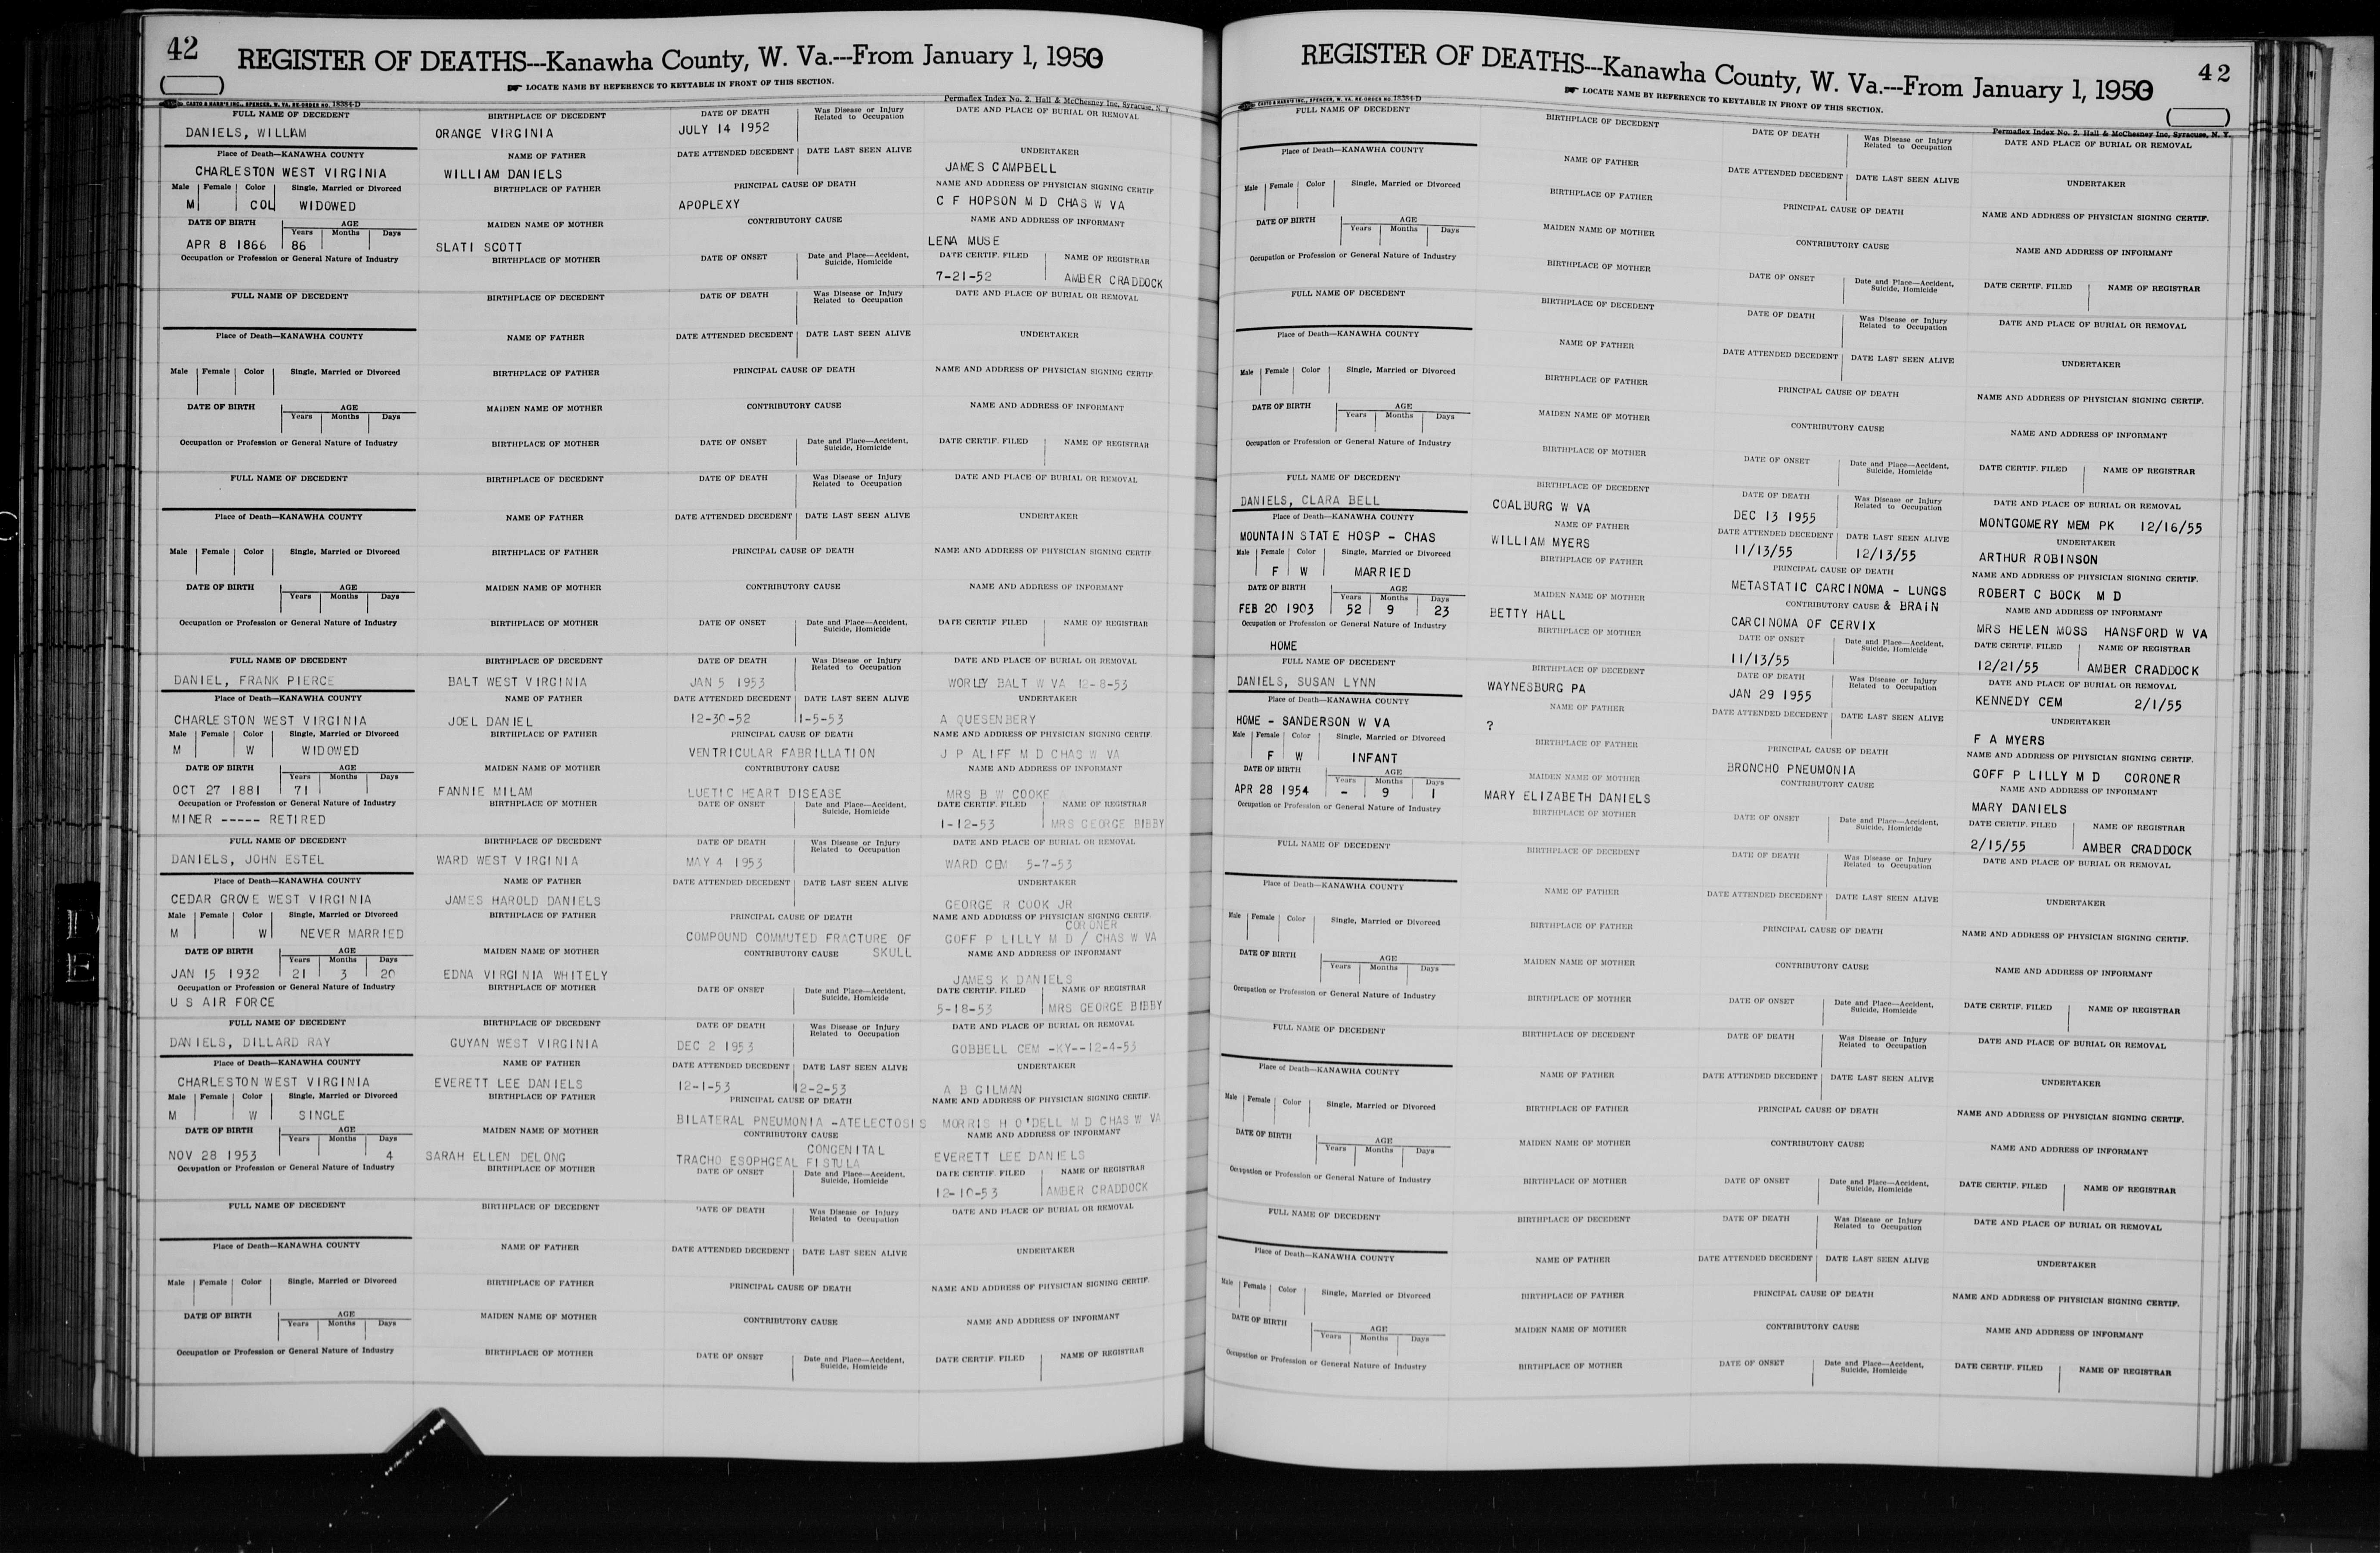 42
REGISTER OF DEATHS---Kanawha County, W. Va.---From January 1, 1950
LOCATE NAME BY REFERENCE TO KEYTABLE IN FRONT OF THIS SECTION.
CASTO & HARRIS INC., SPENCER, W. VA. RE-ORDER NO. 18384-D
Permaflex Index No. 2. Hall & McChesney Inc. Syracuse, N. Y.
FULL NAME OF DECEDENT BIRTHPLACE OF DECEDENT DATE OF DEATH Was Disease or Injury Related to Occupation DATE AND PLACE OF BURIAL OR REMOVAL
DANIELS, WILLIAM ORANGE VIRGINIA JULY 14 1952
Place of Death—KANAWHA COUNTY NAME OF FATHER DATE ATTENDED DECEDENT DATE LAST SEEN ALIVE UNDERTAKER
CHARLESTON WEST VIRGINIA WILLIAM DANIELS JAMES CAMPBELL
Male Female Color Single, Married or Divorced BIRTHPLACE OF FATHER PRINCIPAL CAUSE OF DEATH NAME AND ADDRESS OF PHYSICIAN SIGNING CERTIF
M COL WIDOWED APOPLEXY C F HOPSON M D CHAS W VA
DATE OF BIRTH AGE Years Months Days MAIDEN NAME OF MOTHER CONTRIBUTORY CAUSE NAME AND ADDRESS OF INFORMANT
APR 8 1866 86 SLATI SCOTT LENA MUSE
Occupation or Profession or General Nature of Industry BIRTHPLACE OF MOTHER DATE OF ONSET Date and Place—Accident, Suicide, Homicide DATE CERTIF. FILED NAME OF REGISTRAR
7-21-52 AMBER CRADDOCK
FULL NAME OF DECEDENT BIRTHPLACE OF DECEDENT DATE OF DEATH Was Disease or Injury Related to Occupation DATE AND PLACE OF BURIAL OR REMOVAL
Place of Death—KANAWHA COUNTY NAME OF FATHER DATE ATTENDED DECEDENT DATE LAST SEEN ALIVE UNDERTAKER
Male Female Color Single, Married or Divorced BIRTHPLACE OF FATHER PRINCIPAL CAUSE OF DEATH NAME AND ADDRESS OF PHYSICIAN SIGNING CERTIF
DATE OF BIRTH AGE Years Months Days MAIDEN NAME OF MOTHER CONTRIBUTORY CAUSE NAME AND ADDRESS OF INFORMANT
Occupation or Profession or General Nature of Industry BIRTHPLACE OF MOTHER DATE OF ONSET Date and Place—Accident, Suicide, Homicide DATE CERTIF. FILED NAME OF REGISTRAR
FULL NAME OF DECEDENT BIRTHPLACE OF DECEDENT DATE OF DEATH Was Disease or Injury Related to Occupation DATE AND PLACE OF BURIAL OR REMOVAL
Place of Death—KANAWHA COUNTY NAME OF FATHER DATE ATTENDED DECEDENT DATE LAST SEEN ALIVE UNDERTAKER
Male Female Color Single, Married or Divorced BIRTHPLACE OF FATHER PRINCIPAL CAUSE OF DEATH NAME AND ADDRESS OF PHYSICIAN SIGNING CERTIF
DATE OF BIRTH AGE Years Months Days MAIDEN NAME OF MOTHER CONTRIBUTORY CAUSE NAME AND ADDRESS OF INFORMANT
Occupation or Profession or General Nature of Industry BIRTHPLACE OF MOTHER DATE OF ONSET Date and Place—Accident, Suicide, Homicide DATE CERTIF FILED NAME OF REGISTRAR
FULL NAME OF DECEDENT BIRTHPLACE OF DECEDENT DATE OF DEATH Was Disease or Injury Related to Occupation DATE AND PLACE OF BURIAL OR REMOVAL
DANIEL, FRANK PIERCE BALT WEST VIRGINIA JAN 5 1953 WORLEY BALT W VA 12-8-53
Place of Death—KANAWHA COUNTY NAME OF FATHER DATE ATTENDED DECEDENT DATE LAST SEEN ALIVE UNDERTAKER
CHARLESTON WEST VIRGINIA JOEL DANIEL 12-30-52 1-5-53 A QUESENBERY
Male Female Color Single, Married or Divorced BIRTHPLACE OF FATHER PRINCIPAL CAUSE OF DEATH NAME AND ADDRESS OF PHYSICIAN SIGNING CERTIF.
M W WIDOWED VENTRICULAR FABRILLATION J P ALIFF M D CHAS W VA
DATE OF BIRTH AGE Years Months Days MAIDEN NAME OF MOTHER CONTRIBUTORY CAUSE NAME AND ADDRESS OF INFORMANT
OCT 27 1881 71 FANNIE MILAM LUETIC HEART DISEASE MRS B W COOKE
Occupation or Profession or General Nature of Industry BIRTHPLACE OF MOTHER DATE OF ONSET Date and Place—Accident, Suicide, Homicide DATE CERTIF. FILED NAME OF REGISTRAR
MINER ----- RETIRED 1-12-53 MRS GEORGE BIBBY
FULL NAME OF DECEDENT BIRTHPLACE OF DECEDENT DATE OF DEATH Was Disease or Injury Related to Occupation DATE AND PLACE OF BURIAL OR REMOVAL
DANIELS, JOHN ESTEL WARD WEST VIRGINIA MAY 4 1953 WARD CEM 5-7-53
Place of Death—KANAWHA COUNTY NAME OF FATHER DATE ATTENDED DECEDENT DATE LAST SEEN ALIVE UNDERTAKER
CEDAR GROVE WEST VIRGINIA JAMES HAROLD DANIELS GEORGE R COOK JR
Male Female Color Single, Married or Divorced BIRTHPLACE OF FATHER PRINCIPAL CAUSE OF DEATH NAME AND ADDRESS OF PHYSICIAN SIGNING CERTIF.
CORONER
M W NEVER MARRIED COMPOUND COMMUTED FRACTURE OF GOFF P LILLY M D / CHAS W VA
DATE OF BIRTH AGE Years Months Days MAIDEN NAME OF MOTHER CONTRIBUTORY CAUSE SKULL NAME AND ADDRESS OF INFORMANT
JAN 15 1932 21 3 20 EDNA VIRGINIA WHITELY JAMES K DANIELS
Occupation or Profession or General Nature of Industry BIRTHPLACE OF MOTHER DATE OF ONSET Date and Place—Accident, Suicide, Homicide DATE CERTIF. FILED NAME OF REGISTRAR
U S AIR FORCE 5-18-53 MRS GEORGE BIBBY
FULL NAME OF DECEDENT BIRTHPLACE OF DECEDENT DATE OF DEATH Was Disease or Injury Related to Occupation DATE AND PLACE OF BURIAL OR REMOVAL
DANIELS, DILLARD RAY GUYAN WEST VIRGINIA DEC 2 1953 GOBBELL CEM -KY--12-4-53
Place of Death—KANAWHA COUNTY NAME OF FATHER DATE ATTENDED DECEDENT DATE LAST SEEN ALIVE UNDERTAKER
CHARLESTON WEST VIRGINIA EVERETT LEE DANIELS 12-1-53 12-2-53 A B GILMAN
Male Female Color Single, Married or Divorced BIRTHPLACE OF FATHER PRINCIPAL CAUSE OF DEATH NAME AND ADDRESS OF PHYSICIAN SIGNING CERTIF.
M W SINGLE BILATERAL PNEUMONIA -ATELECTOSIS MORRIS H O'DELL M D CHAS W VA
DATE OF BIRTH AGE Years Months Days MAIDEN NAME OF MOTHER CONTRIBUTORY CAUSE NAME AND ADDRESS OF INFORMANT
CONGENITAL
NOV 28 1953 4 SARAH ELLEN DELONG TRACHO ESOPHGEAL FISTULA EVERETT LEE DANIELS
Occupation or Profession or General Nature of Industry BIRTHPLACE OF MOTHER DATE OF ONSET Date and Place—Accident, Suicide, Homicide DATE CERTIF. FILED NAME OF REGISTRAR
12-10-53 AMBER CRADDOCK
FULL NAME OF DECEDENT BIRTHPLACE OF DECEDENT DATE OF DEATH Was Disease or Injury Related to Occupation DATE AND PLACE OF BURIAL OR REMOVAL
Place of Death—KANAWHA COUNTY NAME OF FATHER DATE ATTENDED DECEDENT DATE LAST SEEN ALIVE UNDERTAKER
Male Female Color Single, Married or Divorced BIRTHPLACE OF FATHER PRINCIPAL CAUSE OF DEATH NAME AND ADDRESS OF PHYSICIAN SIGNING CERTIF.
DATE OF BIRTH AGE Years Months Days MAIDEN NAME OF MOTHER CONTRIBUTORY CAUSE NAME AND ADDRESS OF INFORMANT
Occupation or Profession or General Nature of Industry BIRTHPLACE OF MOTHER DATE OF ONSET Date and Place—Accident, Suicide, Homicide DATE CERTIF. FILED NAME OF REGISTRAR
D
E
REGISTER OF DEATHS---Kanawha County, W. Va.---From January 1, 1950
42
LOCATE NAME BY REFERENCE TO KEYTABLE IN FRONT OF THIS SECTION.
CASTO & HARRIS INC., SPENCER, W. VA. RE-ORDER NO. 18384-D
Permaflex Index No. 2. Hall & McChesney Inc, Syracuse, N. Y.
FULL NAME OF DECEDENT BIRTHPLACE OF DECEDENT DATE OF DEATH Was Disease or Injury Related to Occupation DATE AND PLACE OF BURIAL OR REMOVAL
Place of Death—KANAWHA COUNTY NAME OF FATHER DATE ATTENDED DECEDENT DATE LAST SEEN ALIVE UNDERTAKER
Male Female Color Single, Married or Divorced BIRTHPLACE OF FATHER PRINCIPAL CAUSE OF DEATH NAME AND ADDRESS OF PHYSICIAN SIGNING CERTIF.
DATE OF BIRTH AGE Years Months Days MAIDEN NAME OF MOTHER CONTRIBUTORY CAUSE NAME AND ADDRESS OF INFORMANT
Occupation or Profession or General Nature of Industry BIRTHPLACE OF MOTHER DATE OF ONSET Date and Place—Accident, Suicide, Homicide DATE CERTIF. FILED NAME OF REGISTRAR
FULL NAME OF DECEDENT BIRTHPLACE OF DECEDENT DATE OF DEATH Was Disease or Injury Related to Occupation DATE AND PLACE OF BURIAL OR REMOVAL
Place of Death—KANAWHA COUNTY NAME OF FATHER DATE ATTENDED DECEDENT DATE LAST SEEN ALIVE UNDERTAKER
Male Female Color Single, Married or Divorced BIRTHPLACE OF FATHER PRINCIPAL CAUSE OF DEATH NAME AND ADDRESS OF PHYSICIAN SIGNING CERTIF.
DATE OF BIRTH AGE Years Months Days MAIDEN NAME OF MOTHER CONTRIBUTORY CAUSE NAME AND ADDRESS OF INFORMANT
Occupation or Profession or General Nature of Industry BIRTHPLACE OF MOTHER DATE OF ONSET Date and Place—Accident, Suicide, Homicide DATE CERTIF. FILED NAME OF REGISTRAR
FULL NAME OF DECEDENT BIRTHPLACE OF DECEDENT DATE OF DEATH Was Disease or Injury Related to Occupation DATE AND PLACE OF BURIAL OR REMOVAL
DANIELS, CLARA BELL COALBURG W VA DEC 13 1955 MONTGOMERY MEM PK 12/16/55
Place of Death—KANAWHA COUNTY NAME OF FATHER DATE ATTENDED DECEDENT DATE LAST SEEN ALIVE UNDERTAKER
MOUNTAIN STATE HOSP - CHAS WILLIAM MYERS 11/13/55 12/13/55 ARTHUR ROBINSON
Male Female Color Single, Married or Divorced BIRTHPLACE OF FATHER PRINCIPAL CAUSE OF DEATH NAME AND ADDRESS OF PHYSICIAN SIGNING CERTIF.
F W MARRIED METASTATIC CARCINOMA - LUNGS ROBERT C BOCK M D
DATE OF BIRTH AGE Years Months Days MAIDEN NAME OF MOTHER CONTRIBUTORY CAUSE & BRAIN NAME AND ADDRESS OF INFORMANT
FEB 20 1903 52 9 23 BETTY HALL CARCINOMA OF CERVIX MRS HELEN MOSS HANSFORD W VA
Occupation or Profession or General Nature of Industry BIRTHPLACE OF MOTHER DATE OF ONSET Date and Place—Accident, Suicide, Homicide DATE CERTIF. FILED NAME OF REGISTRAR
HOME 11/13/55 12/21/55 AMBER CRADDOCK
FULL NAME OF DECEDENT BIRTHPLACE OF DECEDENT DATE OF DEATH Was Disease or Injury Related to Occupation DATE AND PLACE OF BURIAL OR REMOVAL
DANIELS, SUSAN LYNN WAYNESBURG PA JAN 29 1955 KENNEDY CEM 2/1/55
Place of Death—KANAWHA COUNTY NAME OF FATHER DATE ATTENDED DECEDENT DATE LAST SEEN ALIVE UNDERTAKER
HOME - SANDERSON W VA ? F A MYERS
Male Female Color Single, Married or Divorced BIRTHPLACE OF FATHER PRINCIPAL CAUSE OF DEATH NAME AND ADDRESS OF PHYSICIAN SIGNING CERTIF.
F W INFANT BRONCHO PNEUMONIA GOFF P LILLY M D CORONER
DATE OF BIRTH AGE Years Months Days MAIDEN NAME OF MOTHER CONTRIBUTORY CAUSE NAME AND ADDRESS OF INFORMANT
APR 28 1954 - 9 1 MARY ELIZABETH DANIELS MARY DANIELS
Occupation or Profession or General Nature of Industry BIRTHPLACE OF MOTHER DATE OF ONSET Date and Place—Accident, Suicide, Homicide DATE CERTIF. FILED NAME OF REGISTRAR
2/15/55 AMBER CRADDOCK
FULL NAME OF DECEDENT BIRTHPLACE OF DECEDENT DATE OF DEATH Was Disease or Injury Related to Occupation DATE AND PLACE OF BURIAL OR REMOVAL
Place of Death—KANAWHA COUNTY NAME OF FATHER DATE ATTENDED DECEDENT DATE LAST SEEN ALIVE UNDERTAKER
Male Female Color Single, Married or Divorced BIRTHPLACE OF FATHER PRINCIPAL CAUSE OF DEATH NAME AND ADDRESS OF PHYSICIAN SIGNING CERTIF.
DATE OF BIRTH AGE Years Months Days MAIDEN NAME OF MOTHER CONTRIBUTORY CAUSE NAME AND ADDRESS OF INFORMANT
Occupation or Profession or General Nature of Industry BIRTHPLACE OF MOTHER DATE OF ONSET Date and Place—Accident, Suicide, Homicide DATE CERTIF. FILED NAME OF REGISTRAR
FULL NAME OF DECEDENT BIRTHPLACE OF DECEDENT DATE OF DEATH Was Disease or Injury Related to Occupation DATE AND PLACE OF BURIAL OR REMOVAL
Place of Death—KANAWHA COUNTY NAME OF FATHER DATE ATTENDED DECEDENT DATE LAST SEEN ALIVE UNDERTAKER
Male Female Color Single, Married or Divorced BIRTHPLACE OF FATHER PRINCIPAL CAUSE OF DEATH NAME AND ADDRESS OF PHYSICIAN SIGNING CERTIF.
DATE OF BIRTH AGE Years Months Days MAIDEN NAME OF MOTHER CONTRIBUTORY CAUSE NAME AND ADDRESS OF INFORMANT
Occupation or Profession or General Nature of Industry BIRTHPLACE OF MOTHER DATE OF ONSET Date and Place—Accident, Suicide, Homicide DATE CERTIF. FILED NAME OF REGISTRAR
FULL NAME OF DECEDENT BIRTHPLACE OF DECEDENT DATE OF DEATH Was Disease or Injury Related to Occupation DATE AND PLACE OF BURIAL OR REMOVAL
Place of Death—KANAWHA COUNTY NAME OF FATHER DATE ATTENDED DECEDENT DATE LAST SEEN ALIVE UNDERTAKER
Male Female Color Single, Married or Divorced BIRTHPLACE OF FATHER PRINCIPAL CAUSE OF DEATH NAME AND ADDRESS OF PHYSICIAN SIGNING CERTIF.
DATE OF BIRTH AGE Years Months Days MAIDEN NAME OF MOTHER CONTRIBUTORY CAUSE NAME AND ADDRESS OF INFORMANT
Occupation or Profession or General Nature of Industry BIRTHPLACE OF MOTHER DATE OF ONSET Date and Place—Accident, Suicide, Homicide DATE CERTIF. FILED NAME OF REGISTRAR